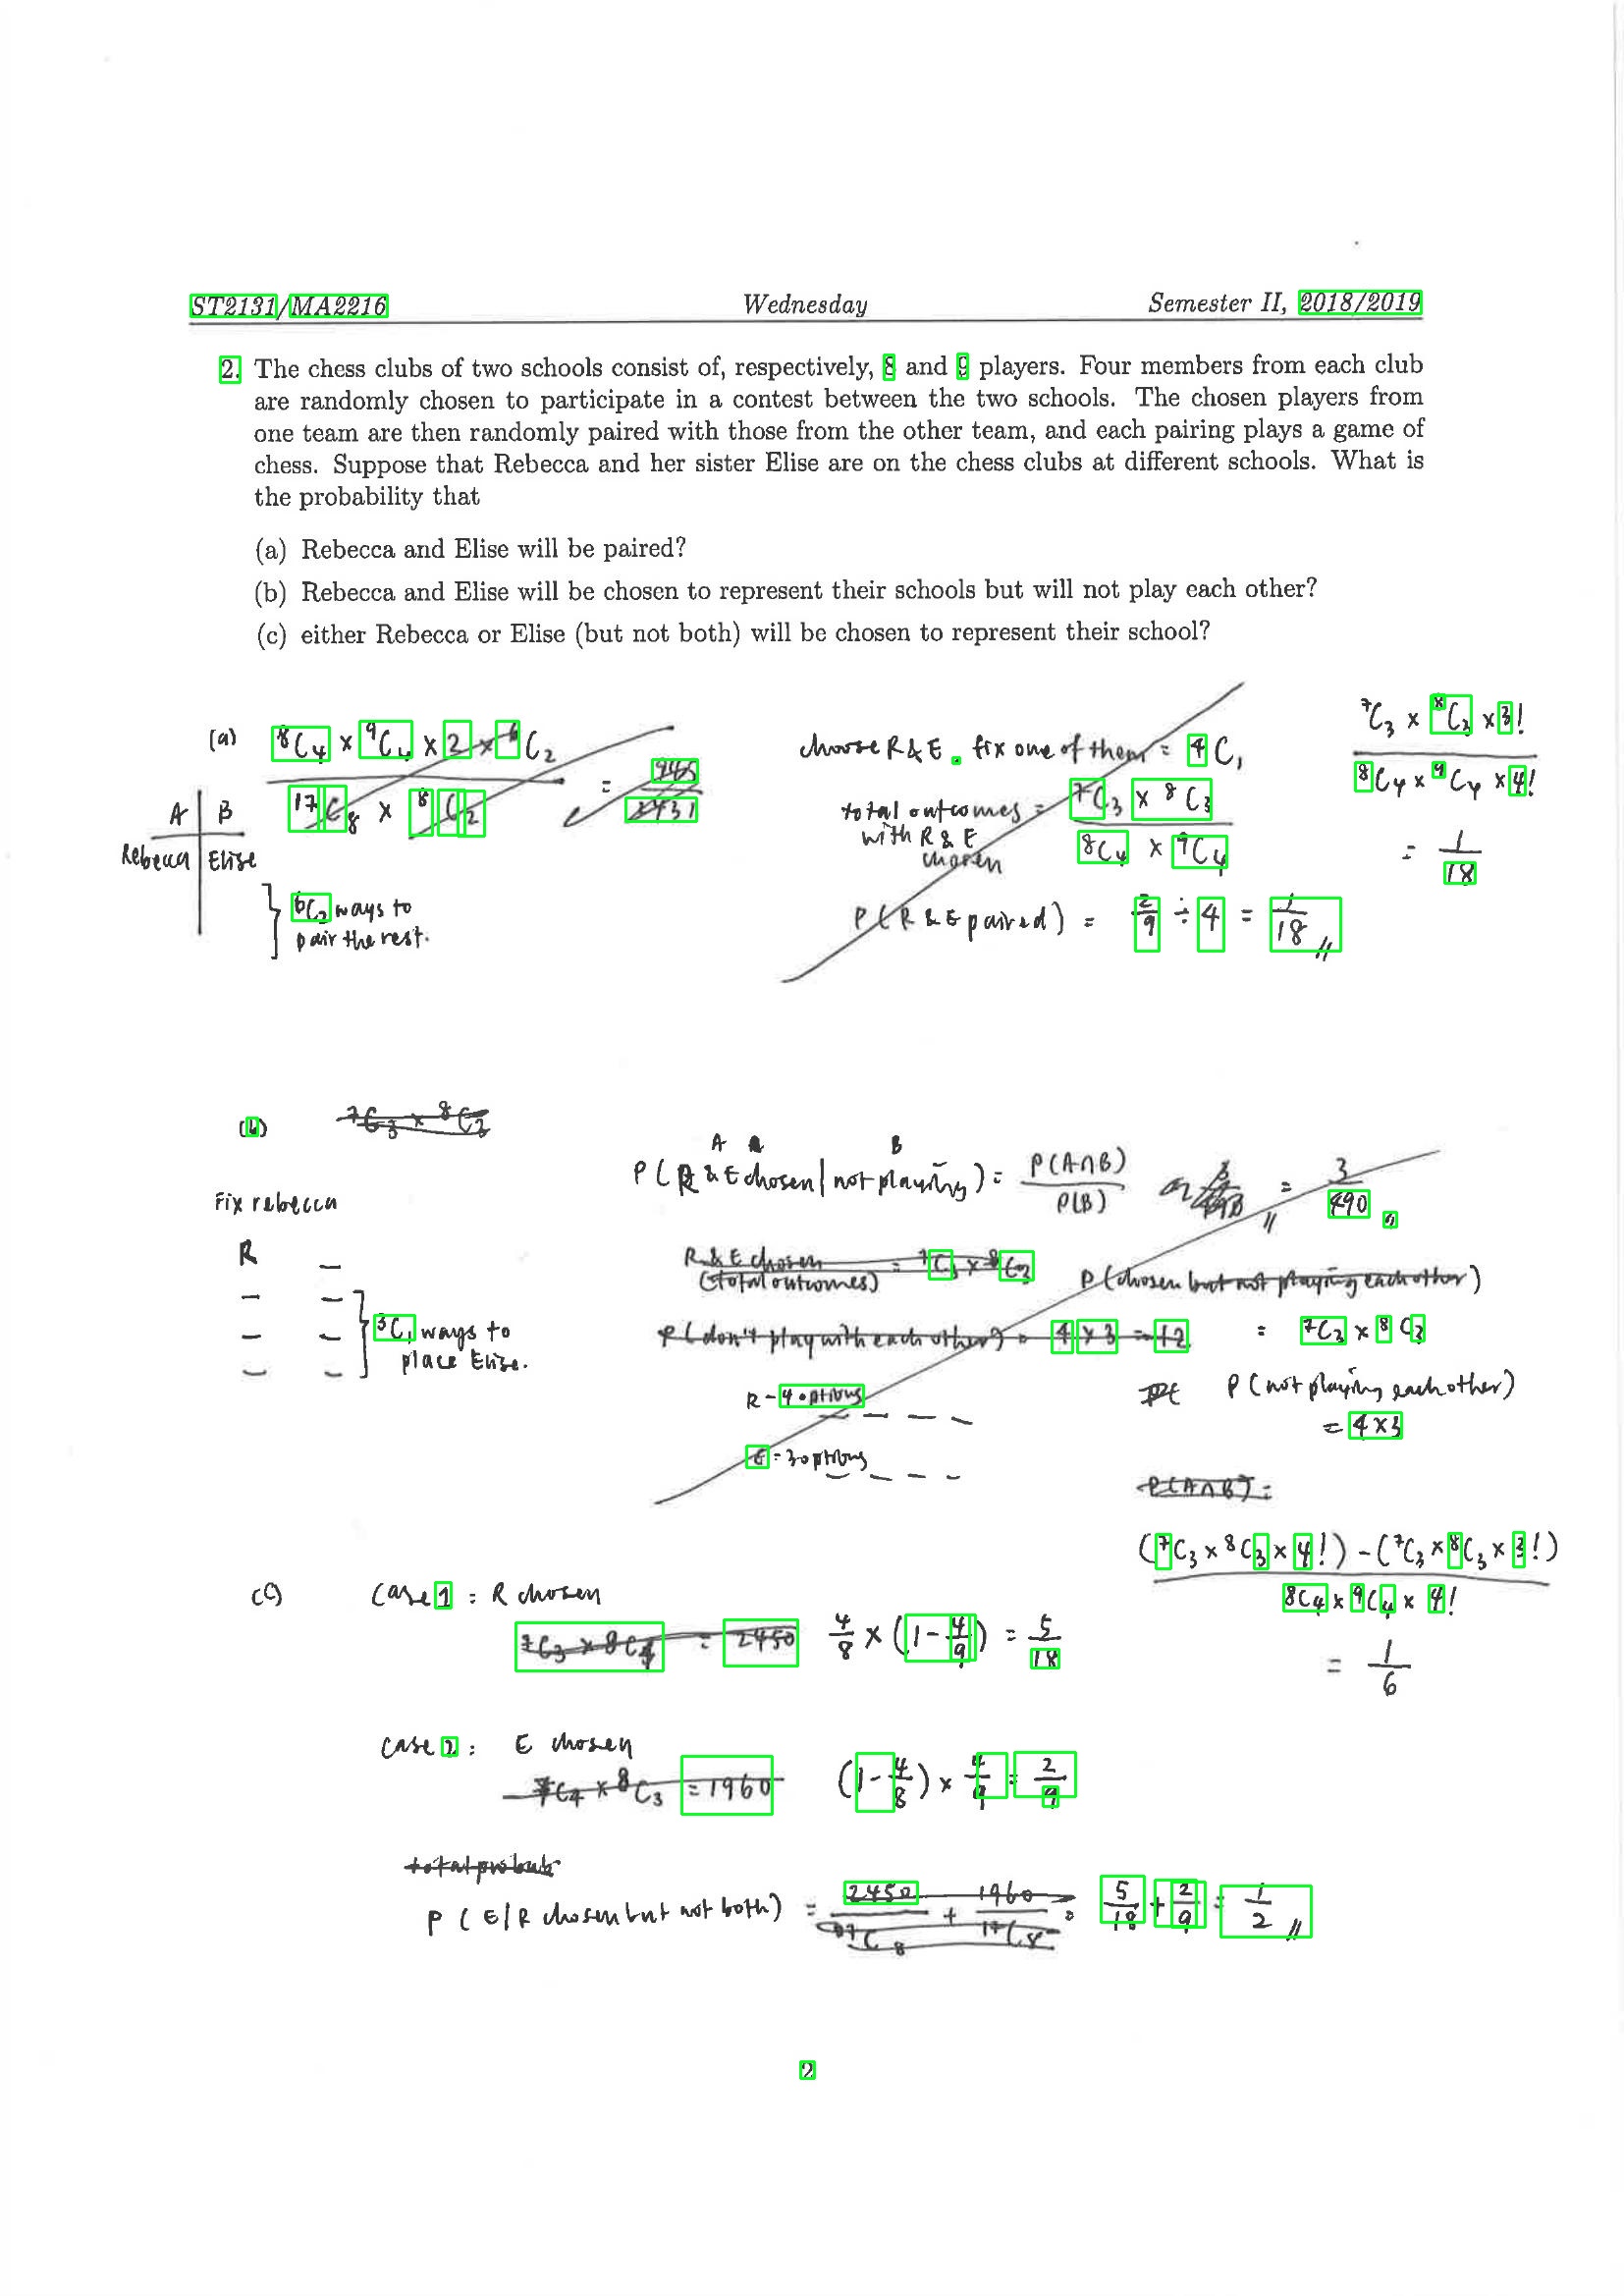 ST2131/MA2216 Wednesday Semester II, 2018/2019
2. The chess clubs of two schools consist of, respectively, 8 and 9 players. Four members from each club
are randomly chosen to participate in a contest between the two schools. The chosen players from
one team are then randomly paired with those from the other team, and each pairing plays a game of
chess. Suppose that Rebecca and her sister Elise are on the chess clubs at different schools. What is
the probability that
(a) Rebecca and Elise will be paired?
(b) Rebecca and Elise will be chosen to represent their schools but will not play each other?
(c) either Rebecca or Elise (but not both) will be chosen to represent their school?
(a) ⁸C₄ × ⁹C₄ × 2 × ⁶C₂
¹⁷C₈ × ⁸C₂
=
A B
Rebecca Elise
⁶C₂ ways to
pair the rest.
choose R & E. fix one of them = ⁴C₁
total outcomes = ⁷C₃ × ⁸C₃
with R & E
chosen
⁸C₄ × ⁹C₄
P(R & E paired) = 2/9 ÷ 4 = 1/18 //
⁷C₃ × ⁸C₃ × 3!
⁸C₄ × ⁹C₄ × 4!
= 1/18
(b) ⁷C₃ × ⁸C₃
Fix rebecca
R
³C₁ ways to
place Elise.
A B
P(R & E chosen | not playing) = P(A∩B)/P(B) = 3/490 //
R & E chosen = ⁷C₃ × ⁸C₃
(total outcomes)
P(chosen but not playing each other)
= ⁷C₃ × ⁸C₃
P(don't play with each other) = 4 × 3 = 12
R - 4 options
E = 3 options
P(not playing each other)
= 4 × 3
P(A∩B) =
(⁷C₃ × ⁸C₃ × 4!) - (⁷C₃ × ⁸C₃ × 3!)
⁸C₄ × ⁹C₄ × 4!
= 1/6
(c) Case 1 : R chosen
⁷C₃ × ⁸C₄ = 2450 4/8 × (1 - 4/9) = 5/18
Case 2 : E chosen
⁷C₄ × ⁸C₃ = 1960 (1 - 4/8) × 4/9 = 2/9
total prob
P(E/R chosen but not both) = 2450/¹⁷C₈ + 1960/¹⁷C₈ = 5/18 + 2/9 = 1/2 //
2